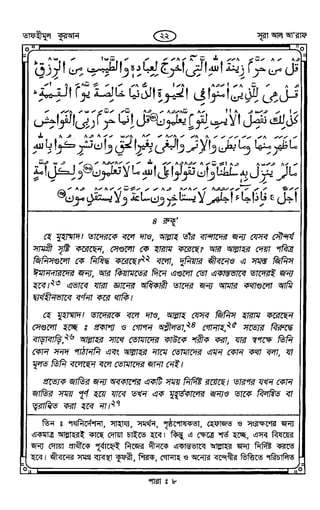 তাফহীমুল কুরআন
২২
সূরা আল আ'রাফ
قُلْ مَنْ حَرَّمَ زِينَةَ اللهِ الَّتِي أَخْرَجَ لِعِبَادِهِ وَالطَّيِّبَتِ مِنَ الرِّزْقِ
قُلْ هِيَ لِلَّذِينَ آمَنُوا فِي الْحَيوةِ الدُّنْيَا خَالِصَةً يَوْمَ الْقِيمَةِ
كَذلِكَ نُفَصِّلُ الْايتِ لِقَوْمٍ يَعْلَمُونَ قُلْ إِنَّمَا حَرَّمَ رَبِّيَ الْفَوَاحِشَ
مَا ظَهَرَ مِنْهَا وَمَا بَطَنَ وَالْإِثْمَ وَالْبَغْيَ بِغَيْرِ الْحَقِّ وَأَنْ تُشْرِكُوا بِاللهِ
مَا لَمْ يُنَزِّلْ بِهِ سُلْطنًا وَأَنْ تَقُولُوا عَلَى اللهِ مَا لَا تَعْلَمُونَ وَلِكُلِّ أُمَّةٍ
أَجَلٌ فَإِذَا جَاءَ أَجَلُهُمْ لَا يَسْتَأْخِرُونَ سَاعَةً وَلَا يَسْتَقْدِمُونَ
৪ রুকূ'
হে মুহাম্মাদ! তাদেরকে বলে দাও, আল্লাহ তাঁর বান্দাদের জন্য যেসব সৌন্দর্য
সামগ্রী সৃষ্টি করেছেন, সেগুলো কে হারাম করেছে? আর আল্লাহর দেয়া পবিত্র
জিনিসগুলো কে নিষিদ্ধ করেছে?২২ বলো, দুনিয়ার জীবনেও এ সমস্ত জিনিস
ঈমানদারদের জন্য, আর কিয়ামতের দিনে এগুলো তো একান্তভাবে তাদেরই জন্য
হবে।২৩ এভাবে যারা জ্ঞানের অধিকারী তাদের জন্য আমার কথাগুলো আমি
দ্ব্যর্থহীনভাবে বর্ণনা করে থাকি।
হে মুহাম্মাদ! তাদেরকে বলে দাও, আল্লাহ যেসব জিনিস হারাম করেছেন
সেগুলো হচ্ছে ঃ প্রকাশ্য ও গোপন অশ্লীলতা,২৪ গোনাহ,২৫ সত্যের বিরুদ্ধে
বাড়াবাড়ি,২৬ আল্লাহর সাথে তোমাদের কাউকে শরীক করা, যার স্বপক্ষে তিনি
কোন সনদ পাঠাননি এবং আল্লাহর নামে তোমাদের এমন কোন কথা বলা, যা
মূলত তিনি বলেছেন বলে তোমাদের জানা নেই।
প্রত্যেক জাতির জন্য অবকাশের একটি সময় নির্দিষ্ট রয়েছে। তারপর যখন কোন
জাতির সময় পূর্ণ হয়ে যাবে তখন এক মুহূর্তকালের জন্যও তাকে বিলম্বিত বা
ত্বরান্বিত করা হবে না।২৭
তিন ঃ পথনির্দেশনা, সাহায্য, সমর্থন, পৃষ্ঠপোষকতা, হেফাজত ও সংরক্ষণের জন্য
একমাত্র আল্লাহরই কাছে দোয়া চাইতে হবে। কিন্তু এ ক্ষেত্রে শর্ত হচ্ছে, এসব বিষয়ের
জন্য দোয়া প্রার্থীকে পূর্বাহ্নেই নিজের দীনকে একান্তভাবে আল্লাহর জন্য নির্দিষ্ট করতে
হবে। জীবনের সমগ্র ব্যবস্থা কুফরী, শিরক, গোনাহ ও অন্যের বন্দেগীর ভিত্তিতে পরিচালিত
পারা ঃ ৮